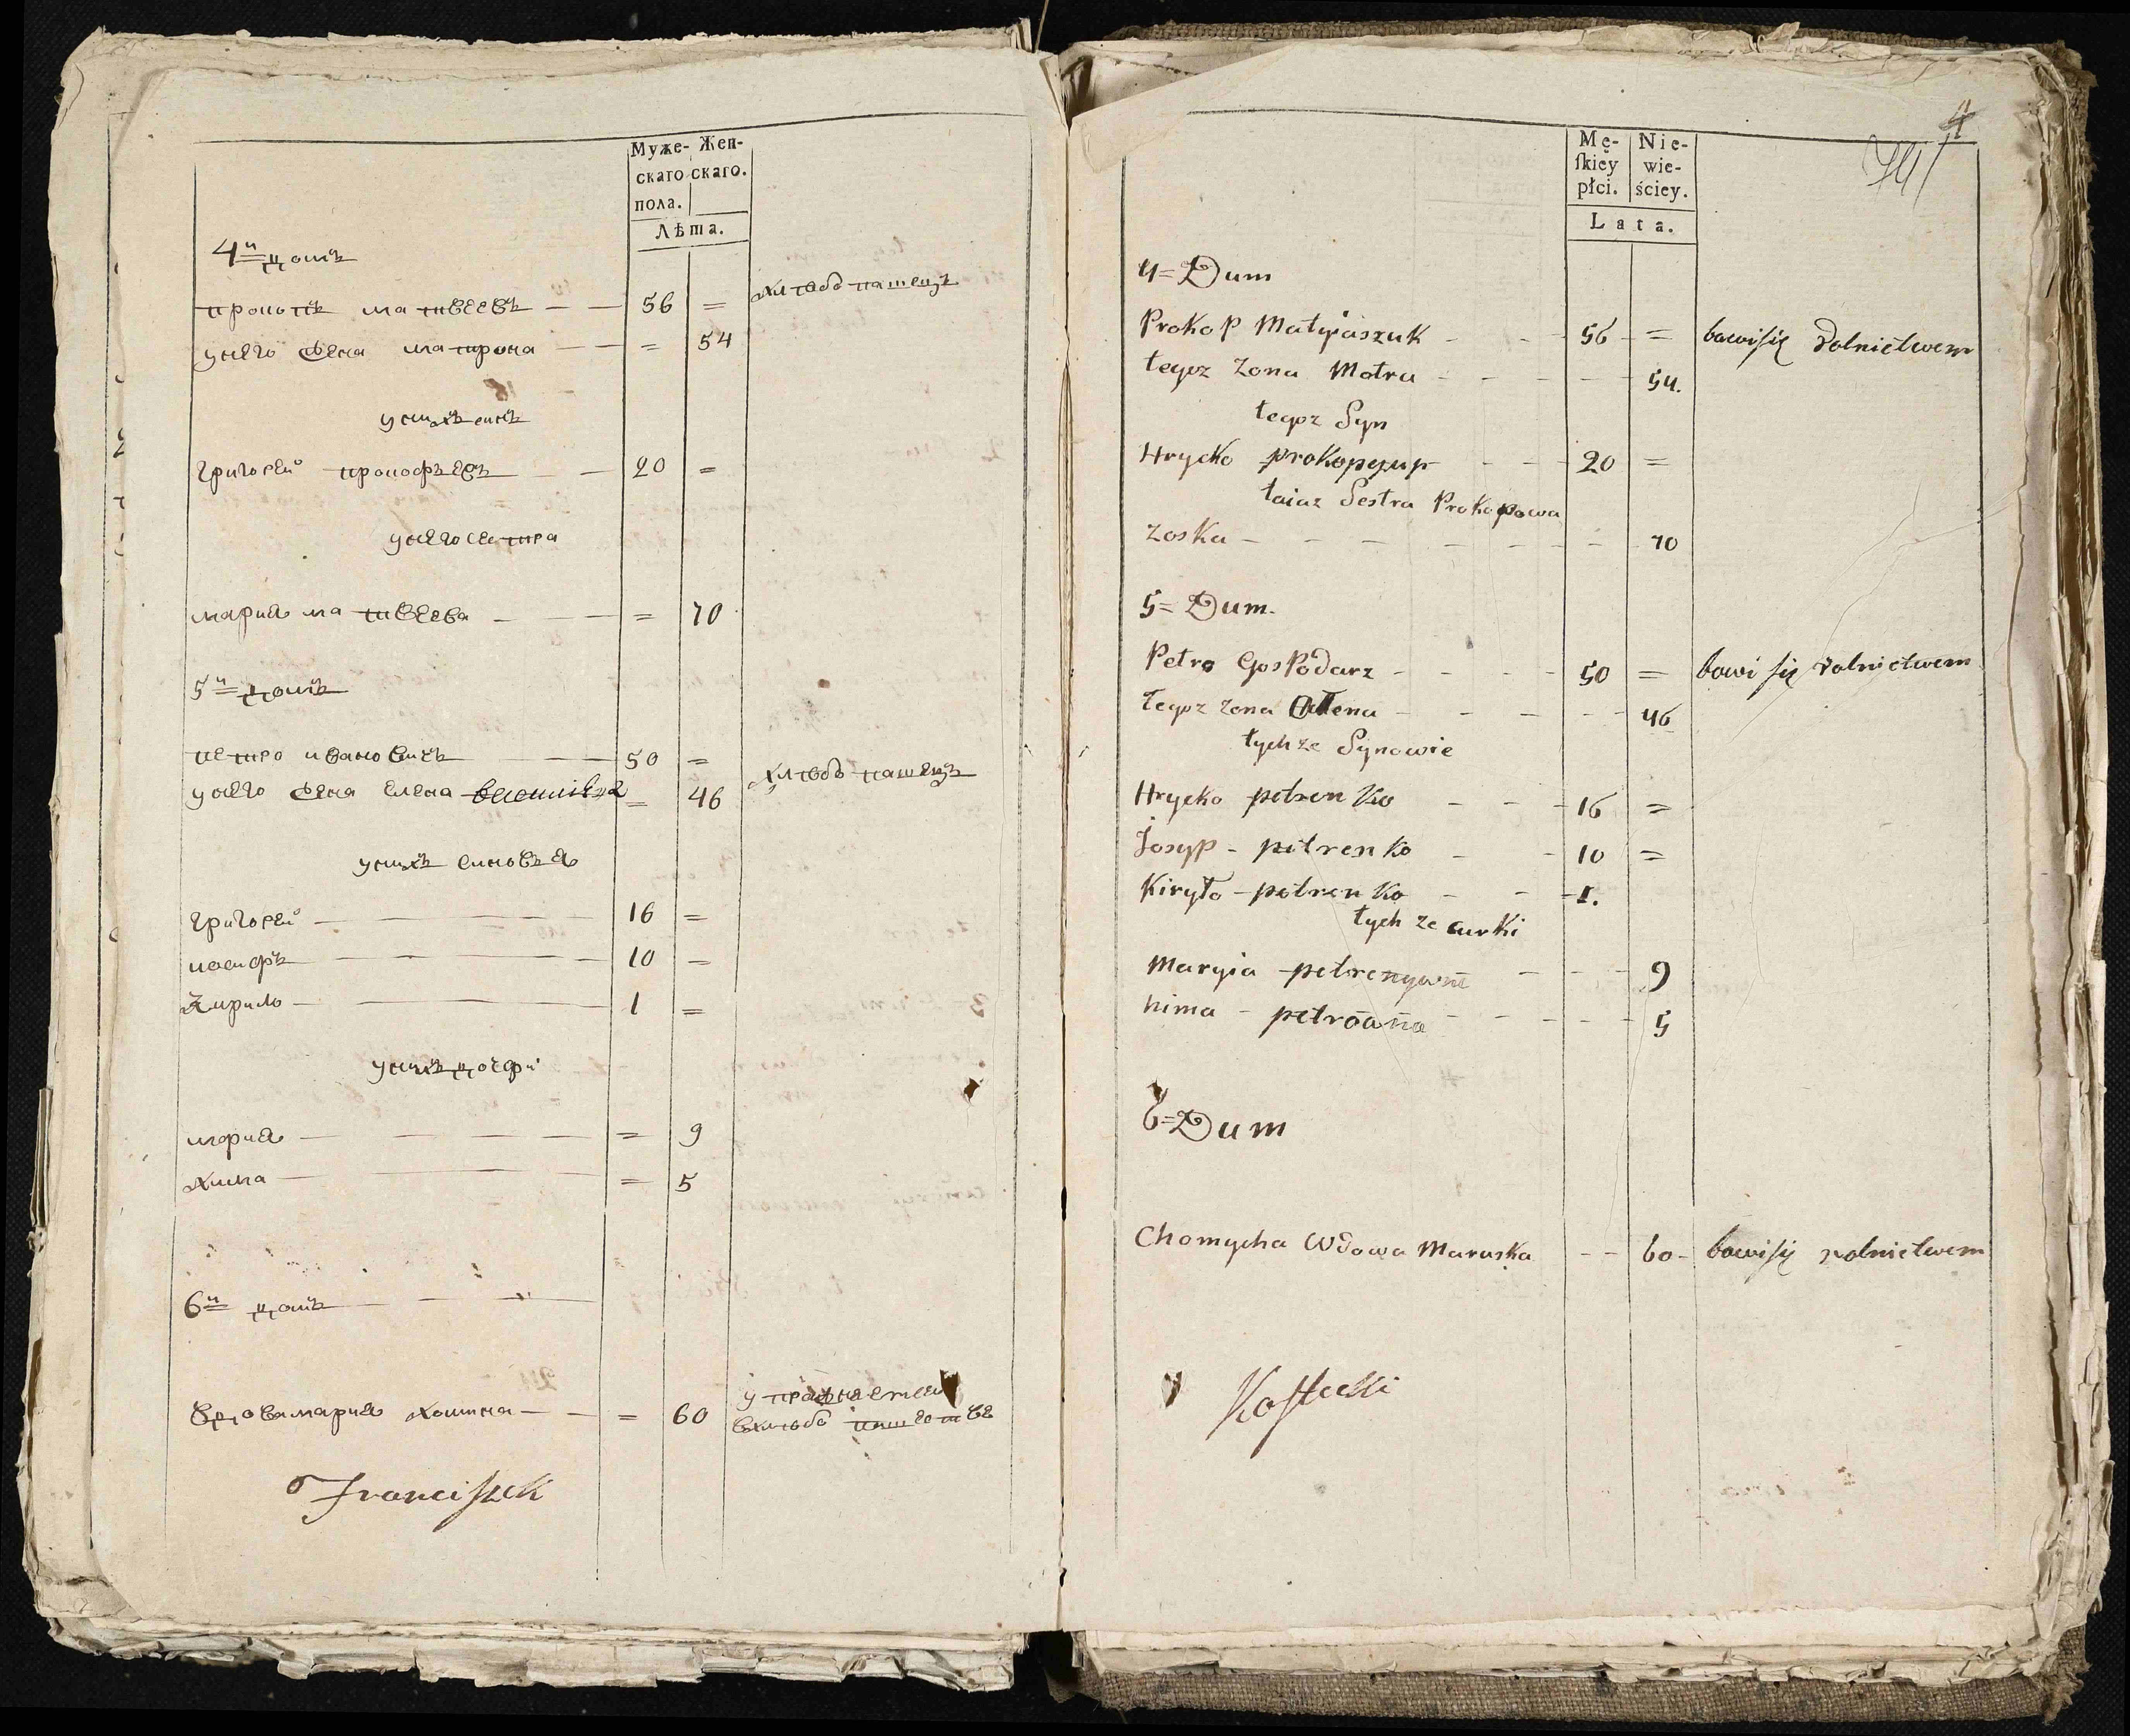 Муже- Жен-
скаго скаго.
пола.
Лѣта.
4й домъ
прокопъ матвеевъ — — 56 = хлѣбо пашецъ
унего жена матрона — — = 54
унихъ синъ
григорей прокофьевъ — 20 =
унего сестра
мария матвеева — — — = 70
5й домъ
петро ивановичъ — — 50 =
унего жена елена = 46 хлѣбо пашецъ
унихъ синовья
григорей — — — — 16 =
иосифъ — — — — 10 =
кирило — — 1 =
унихъ дочери
мария — — — — = 9
химка — — = 5
6й домъ — — —
вдова мария хомина — — = 60 упражняется
вхлѣбо пашестве
Franciszek
4
Mę- Nie-
ſkiey wie-
płci. ściey.
Lata.
4= Dum
Prokop Matyiaszuk - - - 56 = bawi się rolnictwem
tegoz Zona Motra - - - - - 54.
tegoz Syn
Hrycko - - - 20 =
taiaz Sestra Prokopowa
Zoska - - - - - - - - 70
5= Dum.
Petro Gospodarz - - - - 50 = bawi się rolnictwem
tegoz zona - - - - - 46
tychze Synowie
Hrycko petrenko - - - 16 =
Josyp - petrenko - - 10 =
Kiryło - petrenko - - - 1.
tych ze curki
Maryia - - - - 9
hima - - - - - - 5
6= Dum
Chomycha Wdowa Maruska - - 60 - bawi się rolnictwem